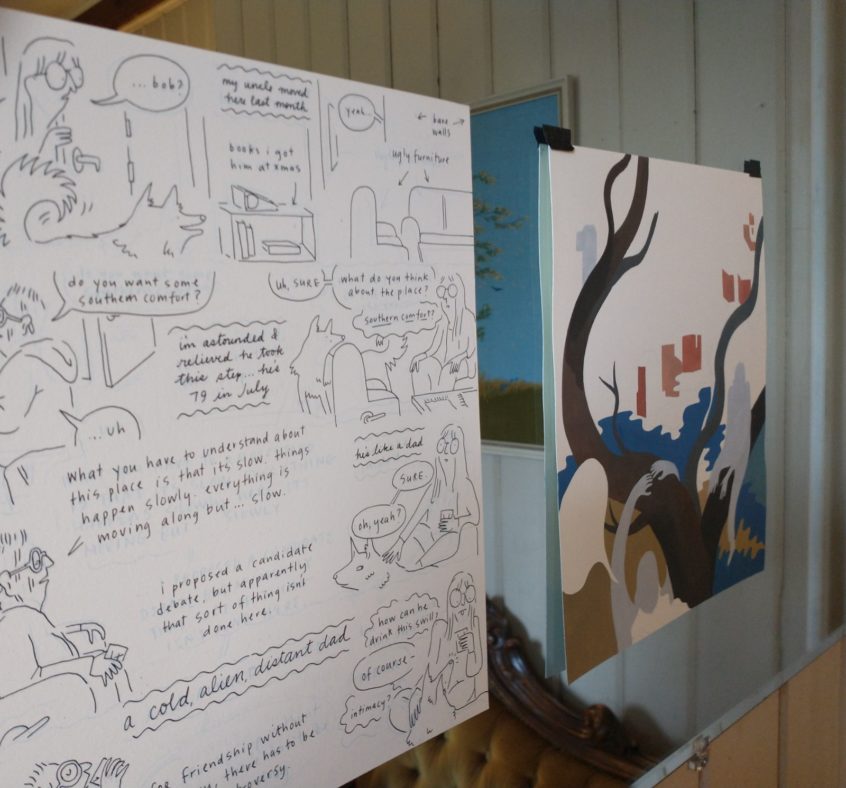 ...bob?
my uncle moved
here last month
books i got
him at xmas
yeah..
← bare →
walls
ugly furniture
do you want some
southern comfort?
i'm astounded &
relieved he took
this step... he's
79 in july
uh, SURE
what do you think
about the place?
southern comfort?
... uh
what you have to understand about
this place is that it's slow. things
happen slowly. everything is
moving along but... slow.
he's like a dad
SURE.
oh, yeah?
i proposed a candidate
debate, but apparently
that sort of thing isn't
done here.
a cold, alien, distant dad
how can he
drink this swill?
of course -
intimacy?
for friendship without
there has to be